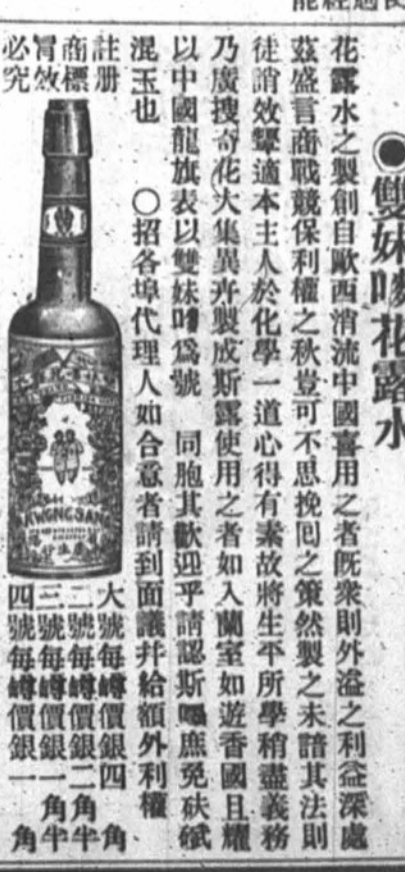 ●雙妹嘜花露水
花露水之製創自歐西消流中國喜用之者旣衆則外溢之利益深處
茲盛言商戰競保利權之秋豈可不思挽囘之策然製之未諳其法則
徒誚效顰適本主人於化學一道心得有素故將生平所學稍盡義務
乃廣搜奇花大集異卉製成斯露使用之者如入蘭室如遊香國且耀
以中國龍旗表以雙妹嘜爲號 同胞其歡迎乎請認斯嘜庶免砆碔
混玉也 ○招各埠代理人如合意者請到面議幷給額外利權
註册
商標
冐效
必究
KWONG SANG
大號每罇價銀四角
二號每罇價銀二角半
三號每罇價銀一角半
四號每罇價銀一角